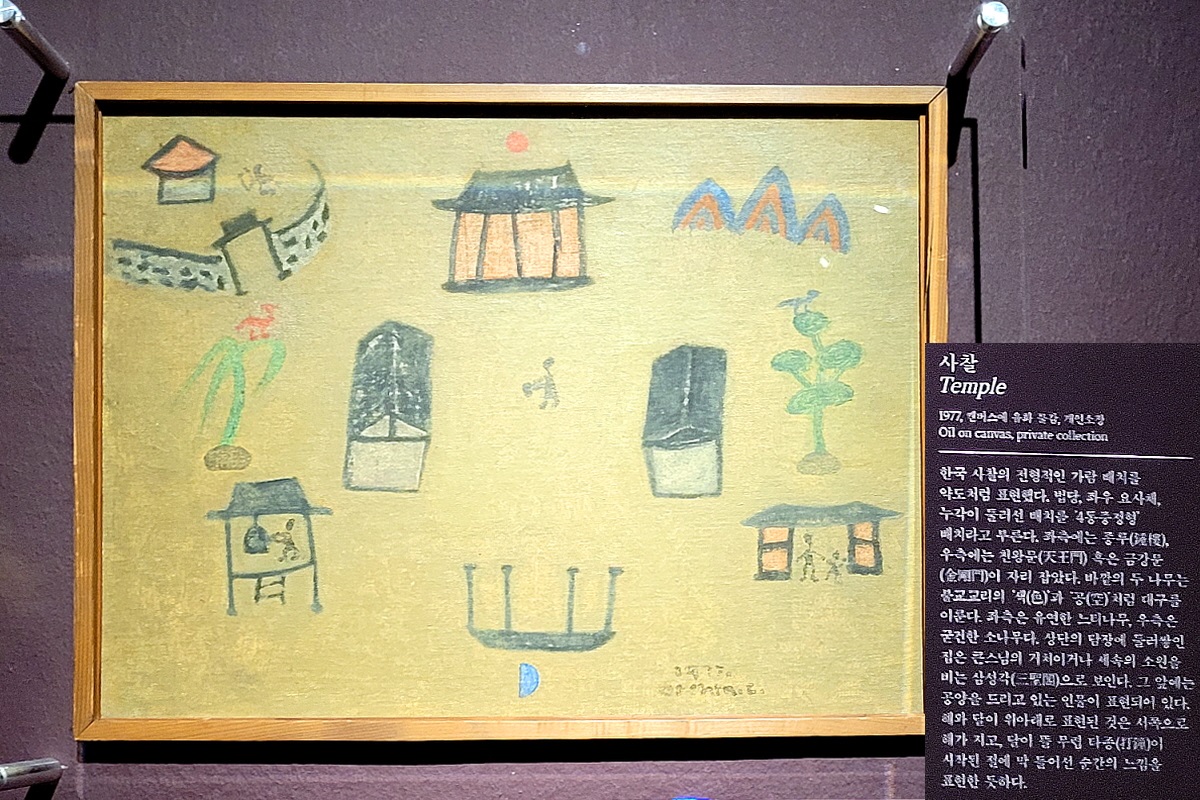 사찰
Temple
1977, 캔버스에 유화 물감, 개인소장
Oil on canvas, private collection
한국 사찰의 전형적인 가람 배치를
약도처럼 표현했다. 법당, 좌우 요사채,
누각이 둘러선 배치를 '4동중정형'
배치라고 부른다. 좌측에는 종루(鐘樓),
우측에는 천왕문(天王門) 혹은 금강문
(金剛門)이 자리 잡았다. 바깥의 두 나무는
불교교리의 '색(色)'과 '공(空)'처럼 대구를
이룬다. 좌측은 유연한 느티나무, 우측은
굳건한 소나무다. 상단의 담장에 둘러쌓인
집은 큰스님의 거처이거나 세속의 소원을
비는 삼성각(三聖閣)으로 보인다. 그 앞에는
공양을 드리고 있는 인물이 표현되어 있다.
해와 달이 위아래로 표현된 것은 서쪽으로
해가 지고, 달이 뜰 무렵 타종(打鐘)이
시작된 절에 막 들어선 순간의 느낌을
표현한 듯하다.